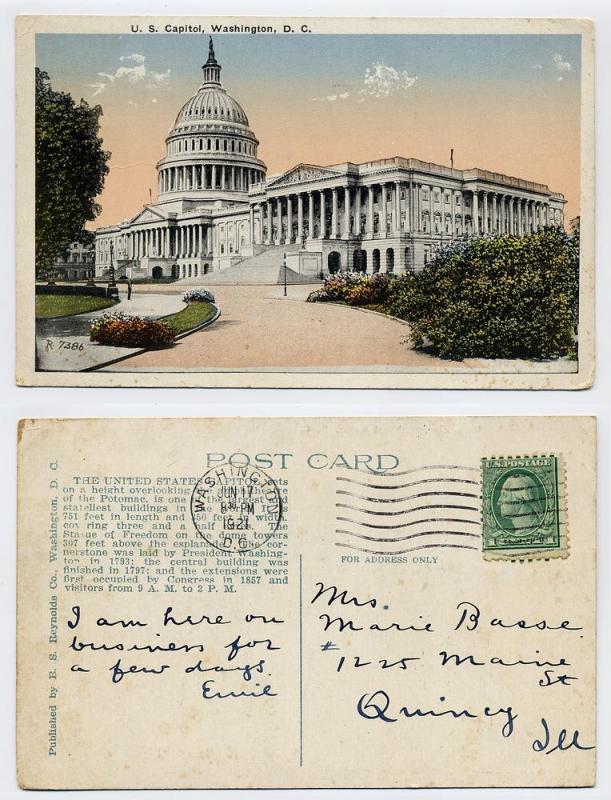 U. S. Capitol, Washington, D. C.
R 7386
POST CARD
THE UNITED STATES CAPITOL
on a height overlooking
of the Potomac, is one of the largest and
stateliest buildings in the
751 feet in length and 350 feet width,
covering three and a half The
Statue of Freedom on the dome towers
307 feet above the esplanade. The cor-
nerstone was laid by President Washing-
ton in 1793; the central building was
finished in 1797; and the extensions were
first occupied by Congress in 1857 and
visitors from 9 A. M. to 2 P. M.
WASHINGTON
JUN 17
8 PM
D.C.
U.S. POSTAGE
FOR ADDRESS ONLY
Published by B. S. Reynolds Co., Washington, D. C.
I am here on
business for
a few days.
Emil
Mrs.
Marie Basse.
# 1225 Maine
St
Quincy
Ill